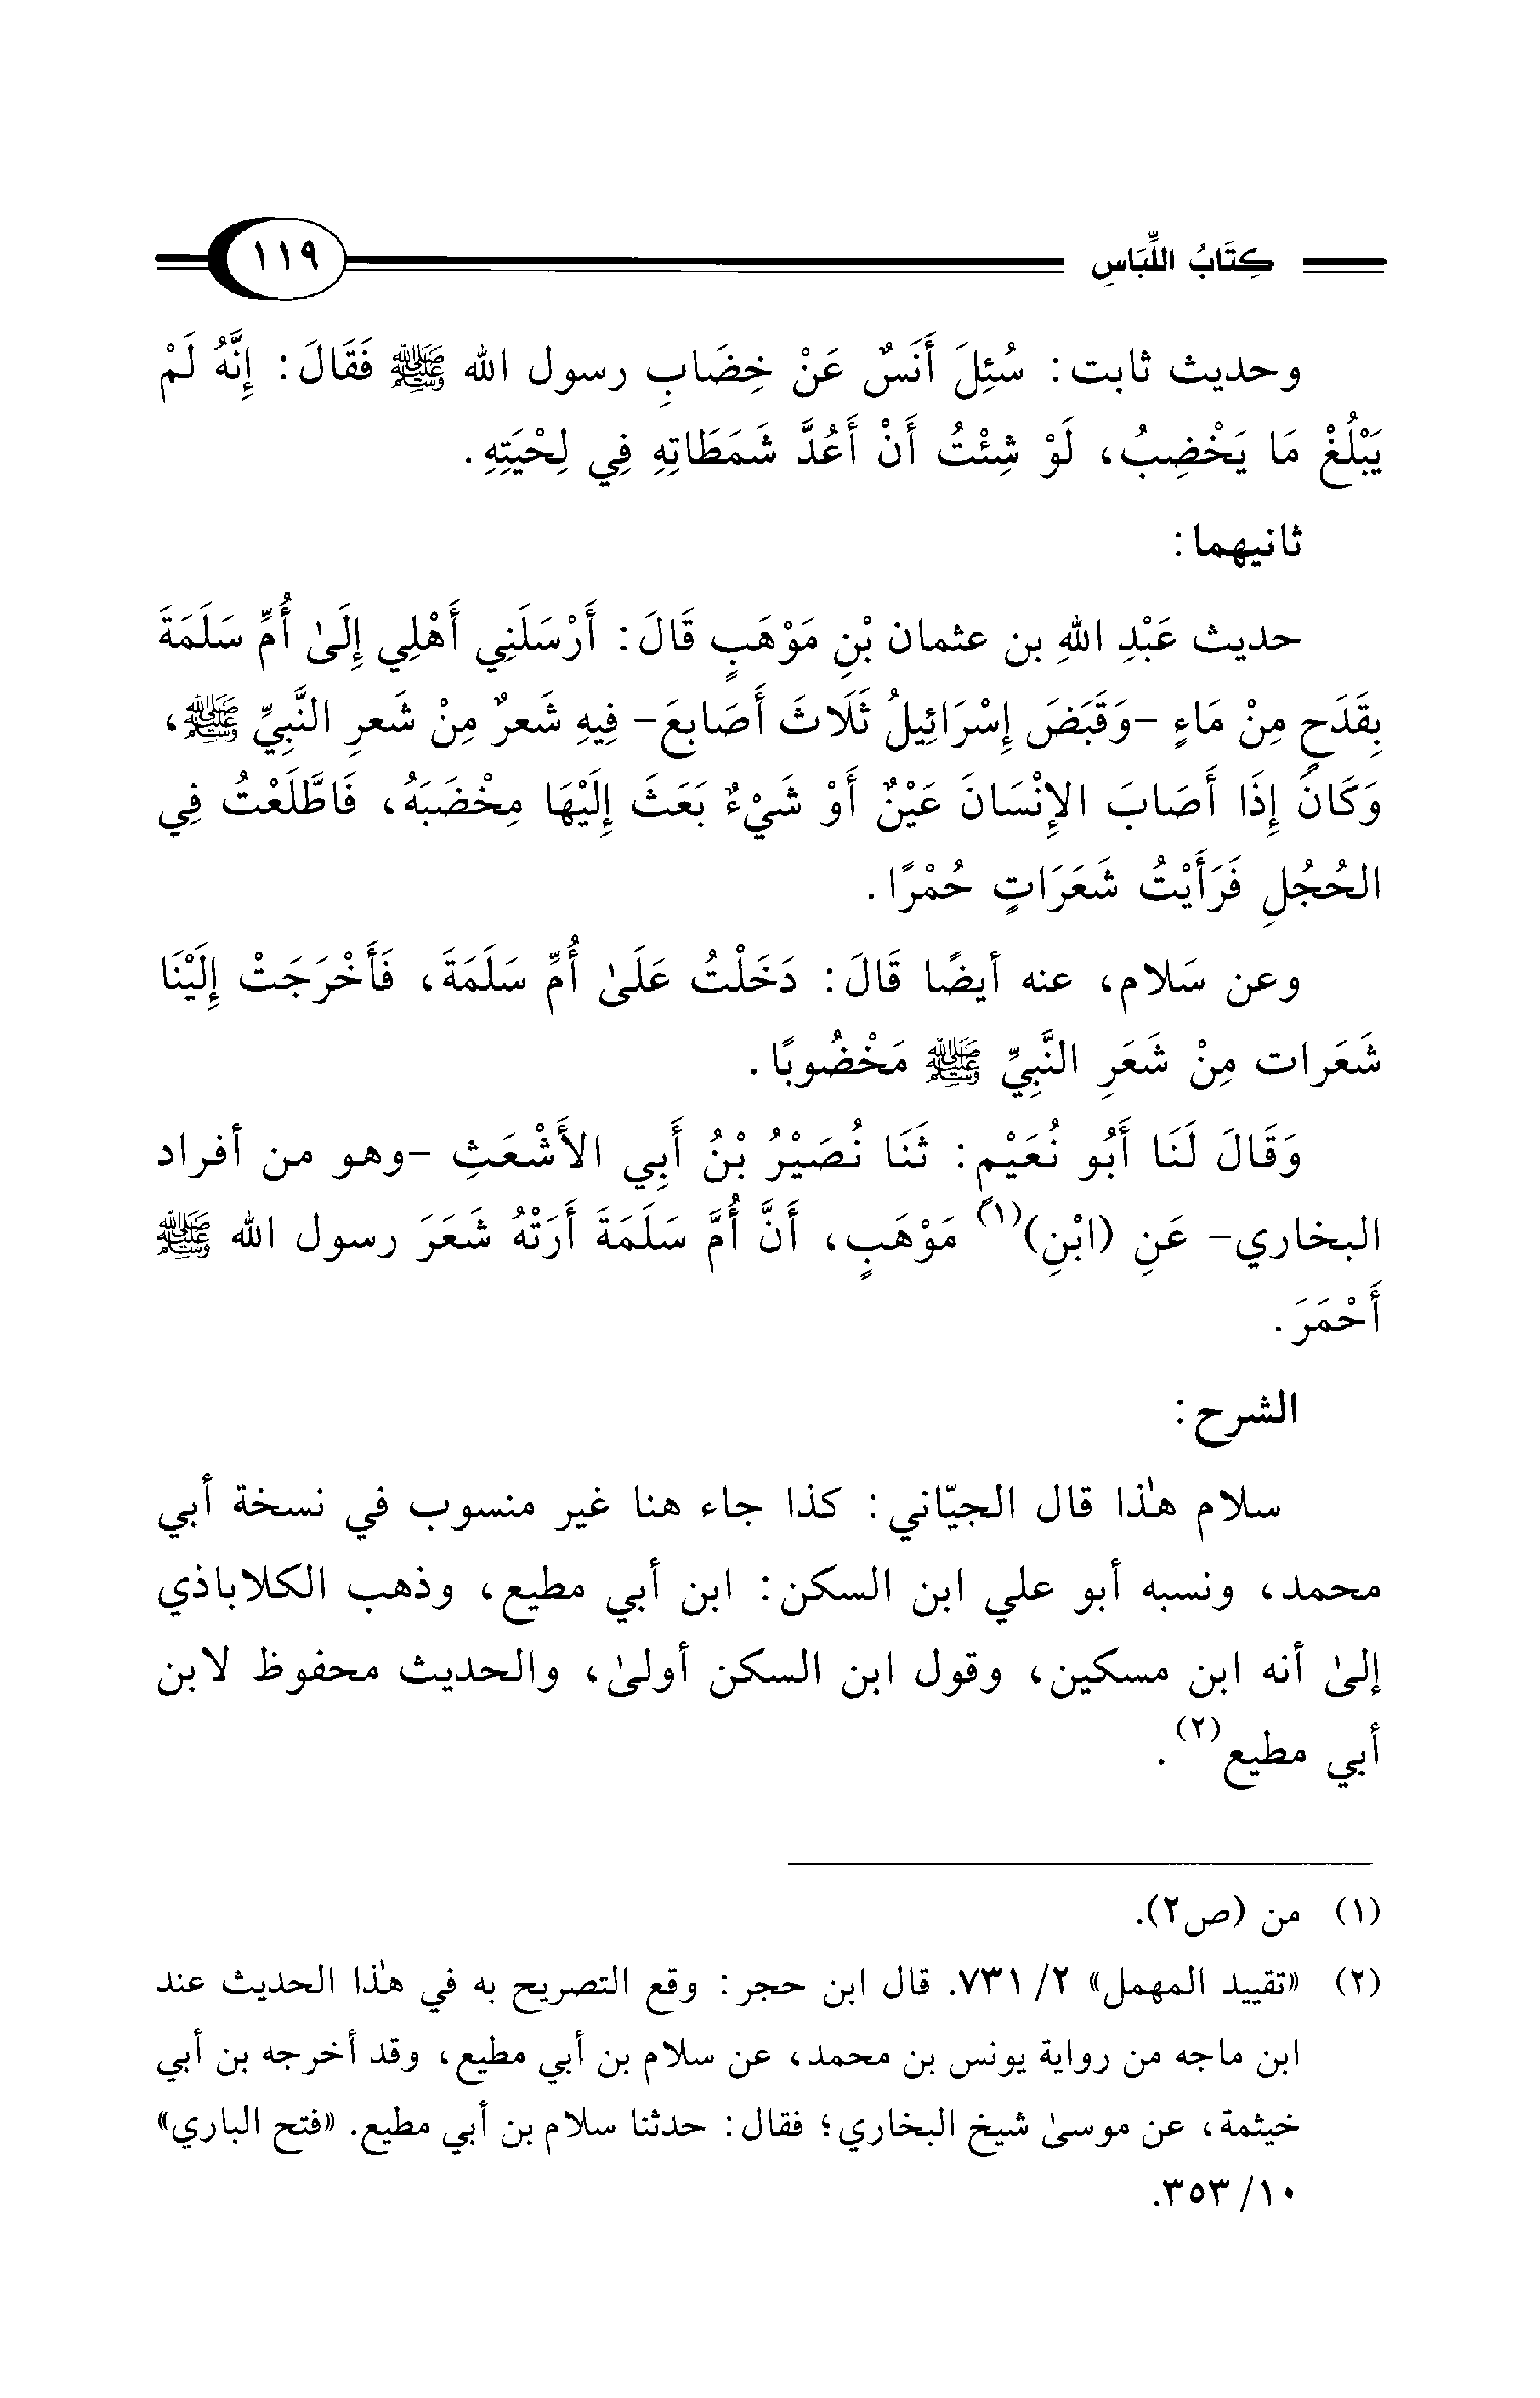 كِتَابُ اللِّبَاسِ ١١٩
وحديث ثابت: سُئِلَ أَنَسٌ عَنْ خِضَابِ رسول الله ﷺ فَقَالَ: إِنَّهُ لَمْ
يَبْلُغْ مَا يَخْضِبُ، لَوْ شِئْتُ أَنْ أَعُدَّ شَمَطَاتِهِ فِي لِحْيَتِهِ.
ثانيهما:
حديث عَبْدِ اللهِ بن عثمان بْنِ مَوْهَبٍ قَالَ: أَرْسَلَنِي أَهْلِي إِلَىٰ أُمِّ سَلَمَةَ
بِقَدَحٍ مِنْ مَاءٍ -وَقَبَضَ إِسْرَائِيلُ ثَلَاثَ أَصَابِعَ- فِيهِ شَعرٌ مِنْ شَعرِ النَّبِيِّ ﷺ،
وَكَانَ إِذَا أَصَابَ الإِنْسَانَ عَيْنٌ أَوْ شَيْءٌ بَعَثَ إِلَيْهَا مِخْضَبَهُ، فَاطَّلَعْتُ فِي
الحُجُلِ فَرَأَيْتُ شَعَرَاتٍ حُمْرًا.
وعن سَلام، عنه أيضًا قَالَ: دَخَلْتُ عَلَىٰ أُمِّ سَلَمَةَ، فَأَخْرَجَتْ إِلَيْنَا
شَعَرات مِنْ شَعَرِ النَّبِيِّ ﷺ مَخْضُوبًا.
وَقَالَ لَنَا أَبُو نُعَيْمٍ: ثَنَا نُصَيْرُ بْنُ أَبِي الأَشْعَثِ -وهو من أفراد
البخاري- عَنِ (ابْنِ)(١) مَوْهَبٍ، أَنَّ أُمَّ سَلَمَةَ أَرَتْهُ شَعَرَ رسول الله ﷺ
أَحْمَرَ.
الشرح:
سلام هٰذا قال الجيّاني: كذا جاء هنا غير منسوب في نسخة أبي
محمد، ونسبه أبو علي ابن السكن: ابن أبي مطيع، وذهب الكلاباذي
إلىٰ أنه ابن مسكين، وقول ابن السكن أولىٰ، والحديث محفوظ لابن
أبي مطيع(٢).
(١) من (ص٢).
(٢) «تقييد المهمل» ٢/ ٧٣١. قال ابن حجر: وقع التصريح به في هٰذا الحديث عند
ابن ماجه من رواية يونس بن محمد، عن سلام بن أبي مطيع، وقد أخرجه بن أبي
خيثمة، عن موسىٰ شيخ البخاري؛ فقال: حدثنا سلام بن أبي مطيع. «فتح الباري»
١٠/ ٣٥٣.